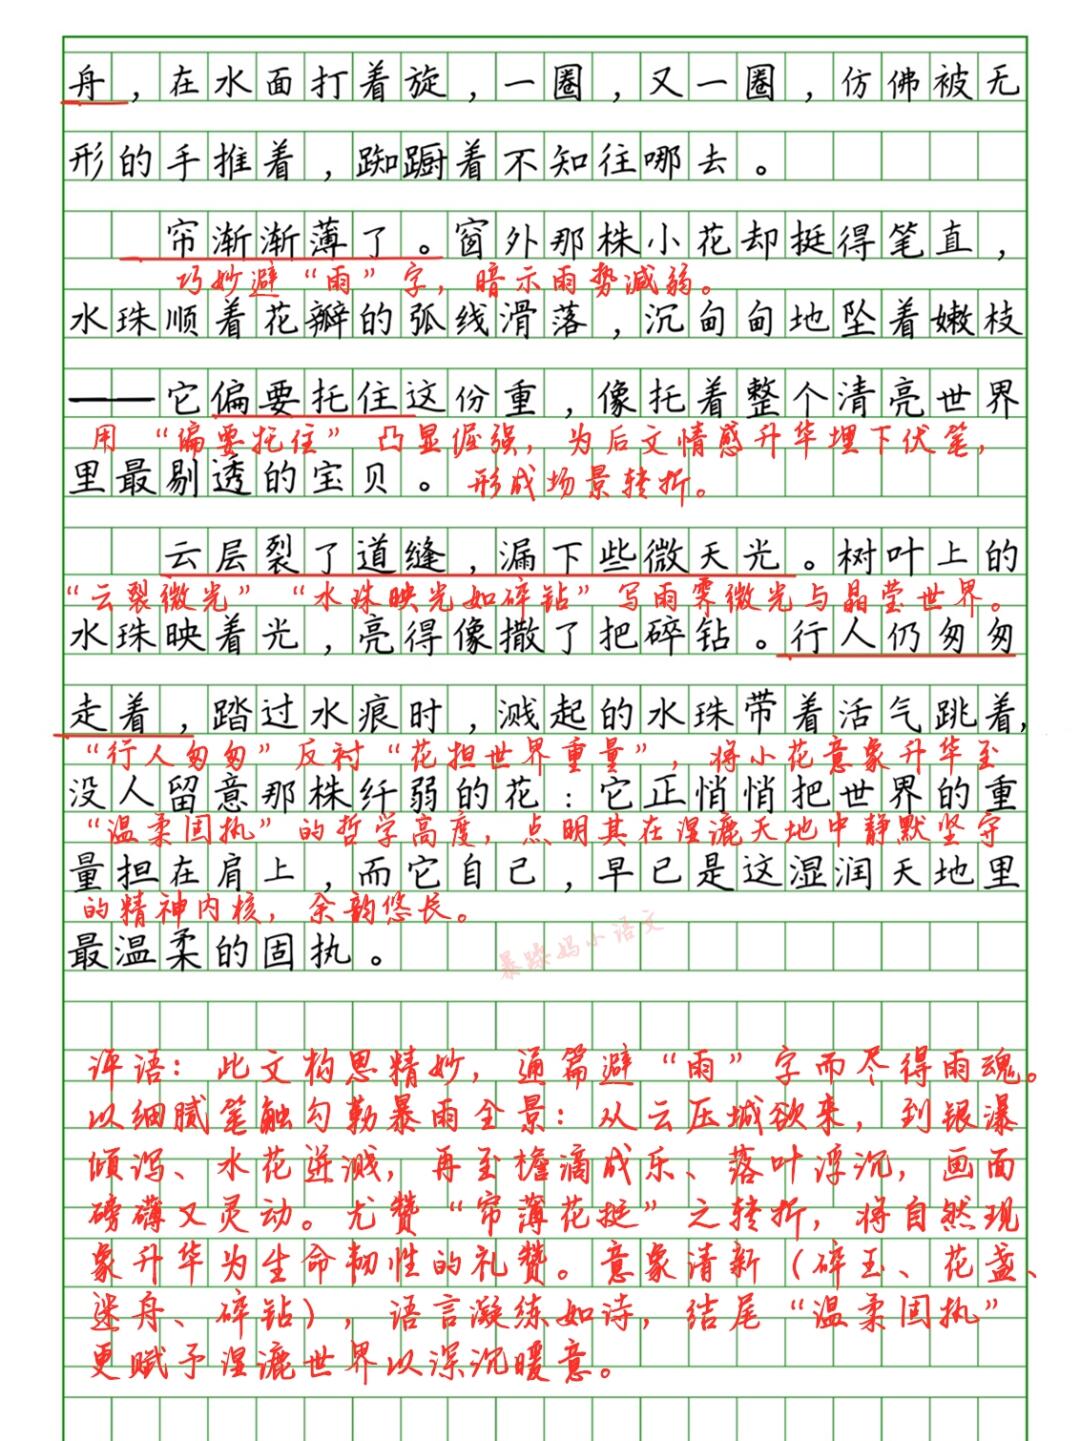 舟，在水面打着旋，一圈，又一圈，仿佛被无
形的手推着，踟蹰着不知往哪去。
帘渐渐薄了。窗外那株小花却挺得笔直，
巧妙避“雨”字，暗示雨势减弱。
水珠顺着花瓣的弧线滑落，沉甸甸地坠着嫩枝
——它偏要托住这份重，像托着整个清亮世界
用“偏要托住”凸显倔强，为后文情感升华埋下伏笔，
里最剔透的宝贝。
形成场景转折。
云层裂了道缝，漏下些微天光。树叶上的
“云裂微光”“水珠映光如碎钻”写雨霁微光与晶莹世界。
水珠映着光，亮得像撒了把碎钻。行人仍匆匆
走着，踏过水痕时，溅起的水珠带着活气跳着，
“行人匆匆”反衬“花担世界重量”，将小花意象升华至
没人留意那株纤弱的花：它正悄悄把世界的重
“温柔固执”的哲学高度，点明其在湿漉天地中静默坚守
量担在肩上，而它自己，早已是这湿润天地里
的精神内核，余韵悠长。
最温柔的固执。
暴躁妈小语文
评语：此文构思精妙，通篇避“雨”字而尽得雨魂。
以细腻笔触勾勒暴雨全景：从云压城欲来，到银瀑
倾泻、水花迸溅，再至檐滴成乐、落叶浮沉，画面
磅礴又灵动。尤赞“帘薄花挺”之转折，将自然现
象升华为生命韧性的礼赞。意象清新（碎玉、花盏、
迷舟、碎钻），语言凝练如诗，结尾“温柔固执”
更赋予湿漉世界以深沉暖意。